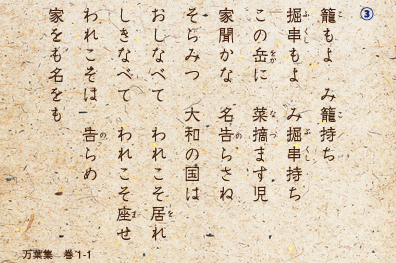 ③
籠もよ　み籠持ち
掘串もよ　み掘串持ち
この岳に　菜摘ます児
家聞かな　名告らさね
そらみつ　大和の国は
おしなべて　われこそ居れ
しきなべて　われこそ座せ
われこそは　告らめ
家をも名をも
万葉集　巻1-1